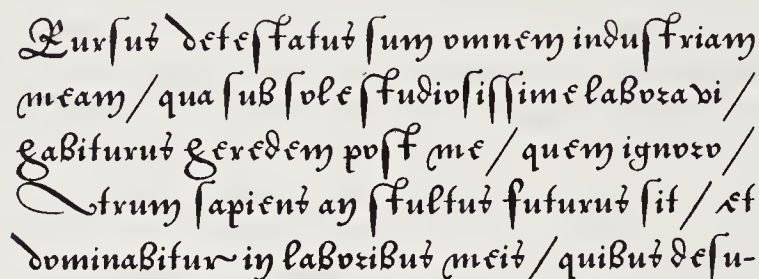 Rursus detestatus sum omnem industriam
meam / qua sub sole studiosissime laboravi /
habiturus heredem post me / quem ignoro /
Utrum sapiens an stultus futurus sit / et
dominabitur in laboribus meis / quibus desu-